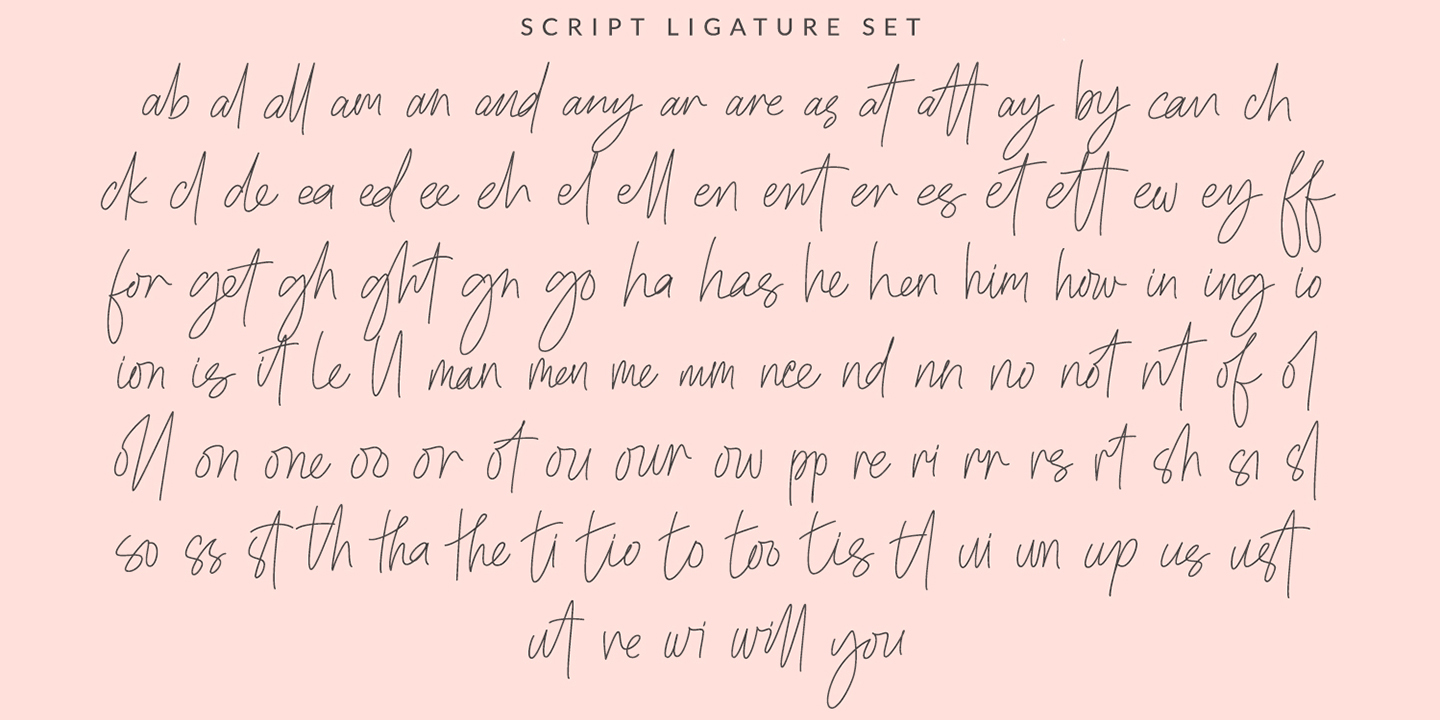 SCRIPT LIGATURE SET
ab al all am an and any ar are as at att ay by can ch
ck cl de ea ed ee eh el ell en ent er es et ett ew ey ff
for get gh ght gn go ha has he hen him how in ing io
ion is it le ll man men me mm nce nd nn no not nt of ol
oll on one oo or ot ou our ow pp re ri rr rs rt sh si sl
so ss st th tha the ti tio to too tis tl ui un up us ust
ut ve wi will you